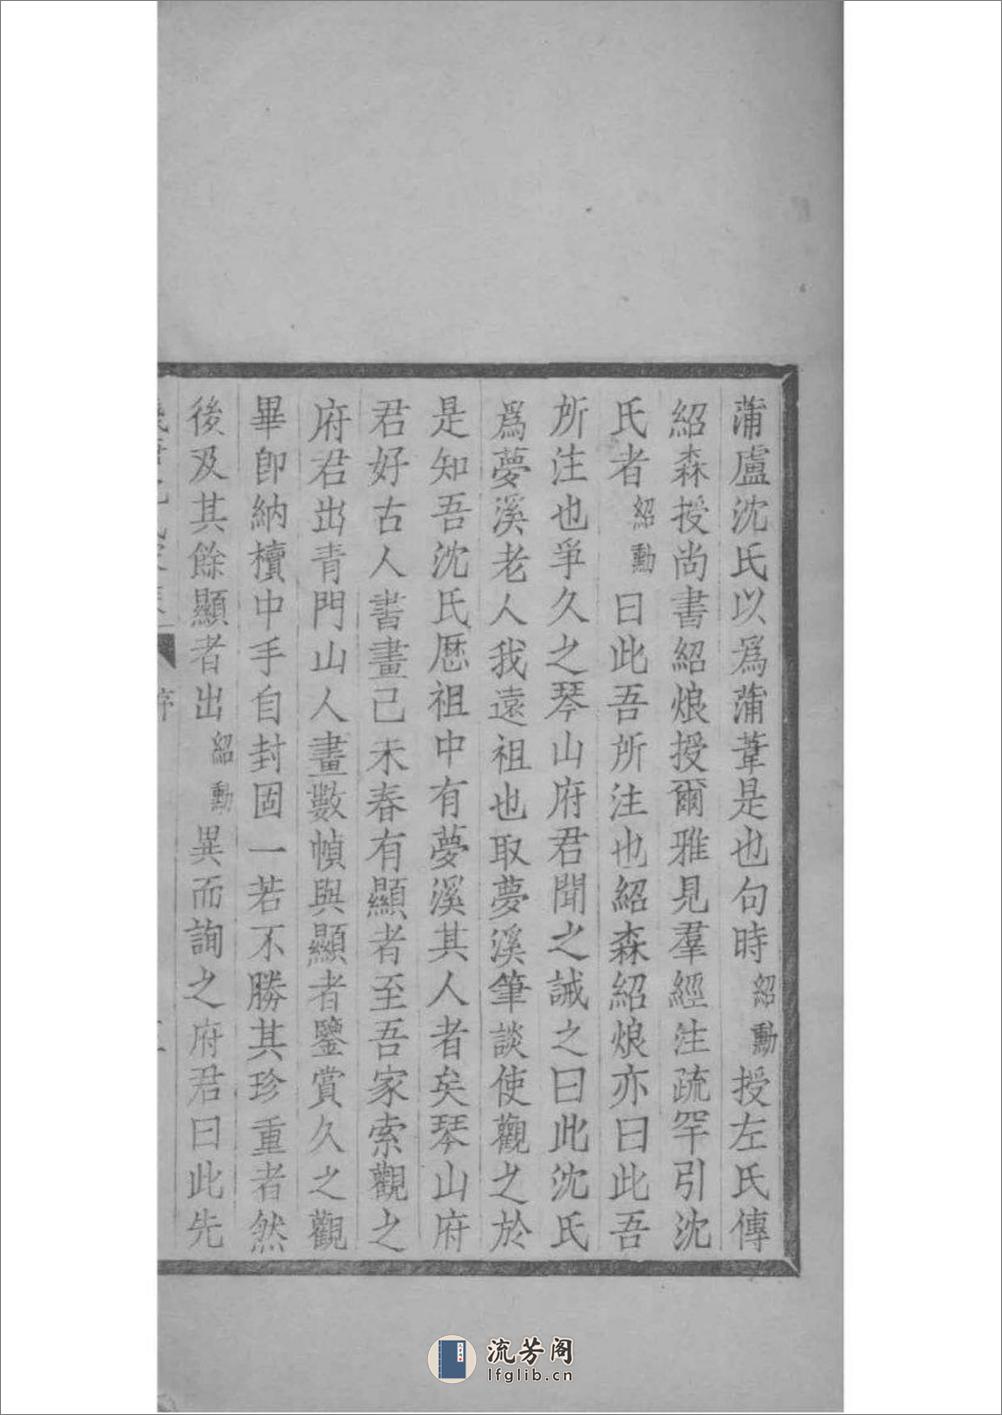 蒲盧沈氏以爲蒲葦是也句時紹勳授左氏傳
紹森授尚書紹烺授爾雅見羣經注疏罕引沈
氏者紹勳曰此吾所注也紹森紹烺亦曰此吾
所注也爭久之琴山府君聞之誡之曰此沈氏
爲夢溪老人我遠祖也取夢溪筆談使觀之於
是知吾沈氏厯祖中有夢溪其人者矣琴山府
君好古人書畫己未春有顯者至吾家索觀之
府君出青門山人畫數幀與顯者鑒賞久之觀
畢卽納櫝中手自封固一若不勝其珍重者然
後及其餘顯者出紹勳異而詢之府君曰此先
序
流芳阁
lfglib.cn